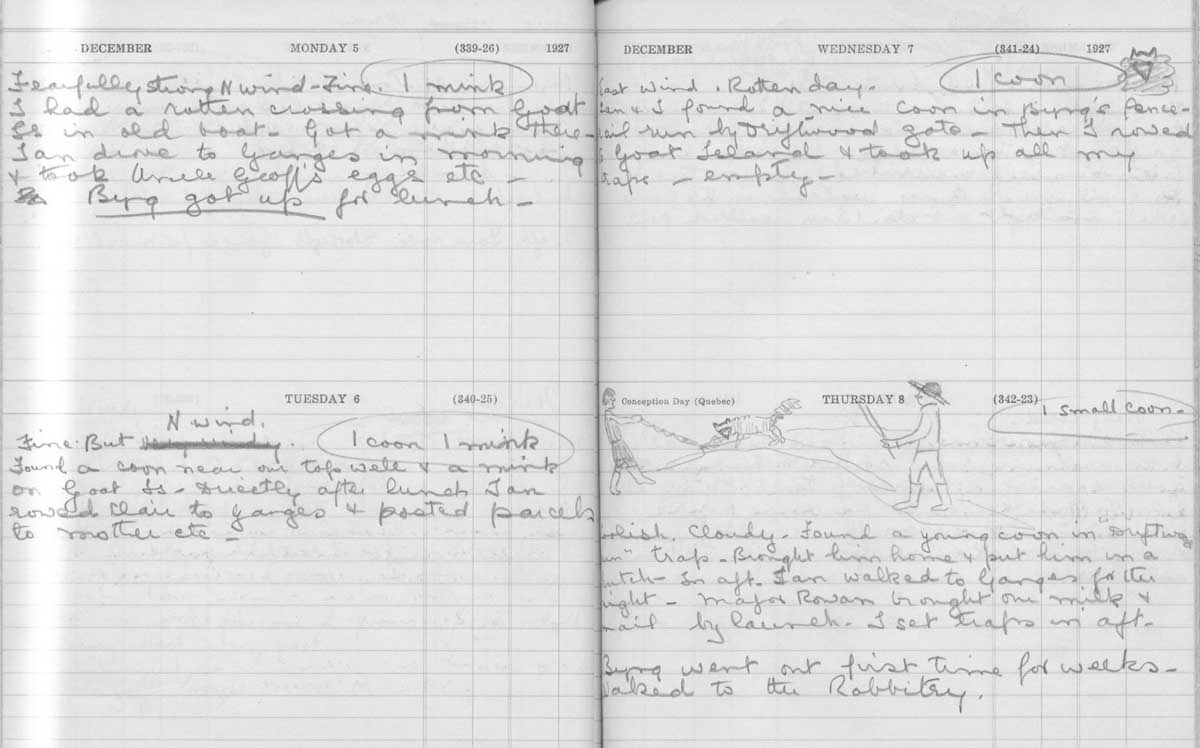 DECEMBER MONDAY 5 (339-26) 1927
Fearfully strong N wind - Fine. 1 mink
I had a rotten crossing from Goat
Is in old boat - Got a mink there -
Ian drove to Ganges in morning
& took Uncle Geoff's eggs etc -
Byng got up for lunch -
TUESDAY 6 (340-25)
N wind.
Fine. But 1 coon 1 mink
Found a coon near our top well & a mink
on Goat Is - Directly after lunch Ian
rowed Clair to Ganges & posted parcels
to mother etc -
DECEMBER WEDNESDAY 7 (341-24) 1927
East wind. Rotten day. 1 coon
& I found a nice coon in Byng's fence-
rail run by Driftwood gate - Then I rowed
Goat Island & took up all my
traps - empty -
Conception Day (Quebec) THURSDAY 8 (342-23)
1 small coon -
Cloudy. Found a young coon in "Driftwood
trap - Brought him home & put him in a
hutch - In aft. Ian walked to Ganges for the
night - Major Rowan brought our milk &
mail by launch. I set traps in aft -
Byng went out first time for weeks -
walked to the Rabbitry.